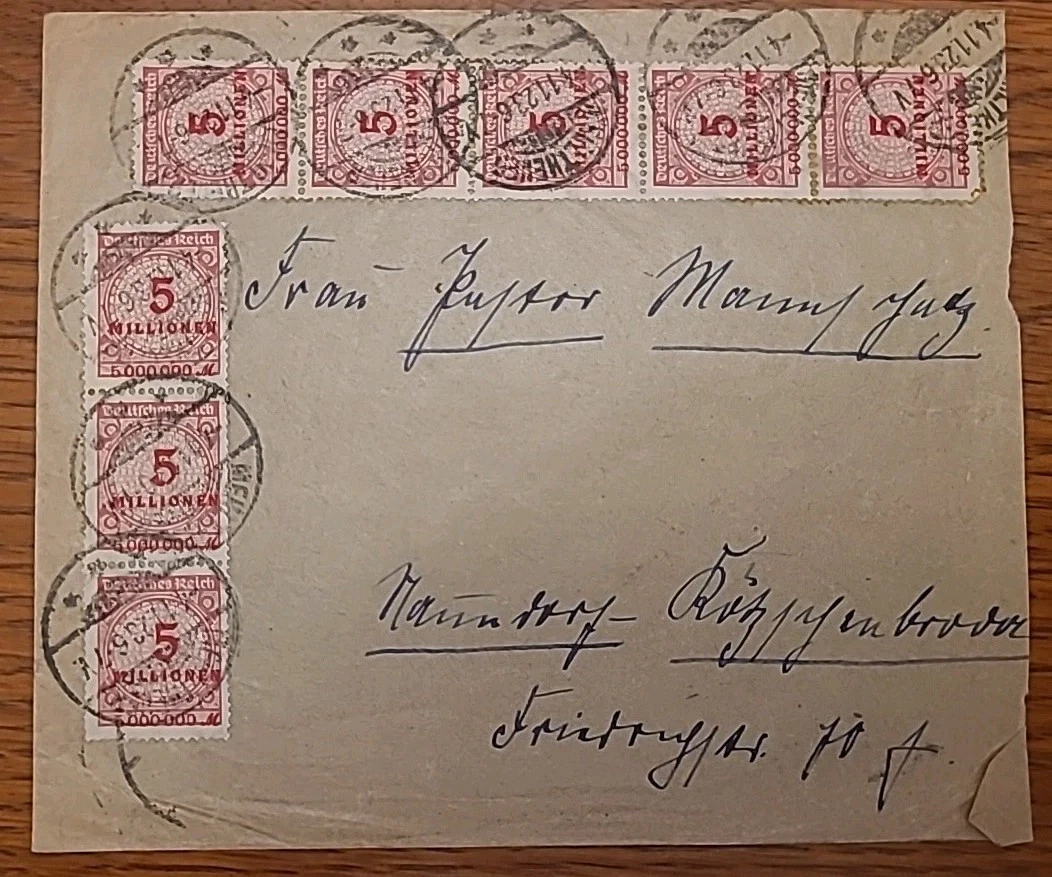 Deutsches Reich 5 MILLIONEN 5000000 M
Deutsches Reich 5 MILLIONEN 5000000 M
Deutsches Reich 5 MILLIONEN 5000000 M
Deutsches Reich 5 MILLIONEN 5000000 M
Deutsches Reich 5 MILLIONEN 5000000 M
Deutsches Reich
5
MILLIONEN
5000000 M
Deutsches Reich
5
MILLIONEN
5000000 M
Deutsches Reich
5
MILLIONEN
5000000 M
Frau Pastor Mannschatz.
Naundorf- Kötzschenbroda
Friedrichstr. 10